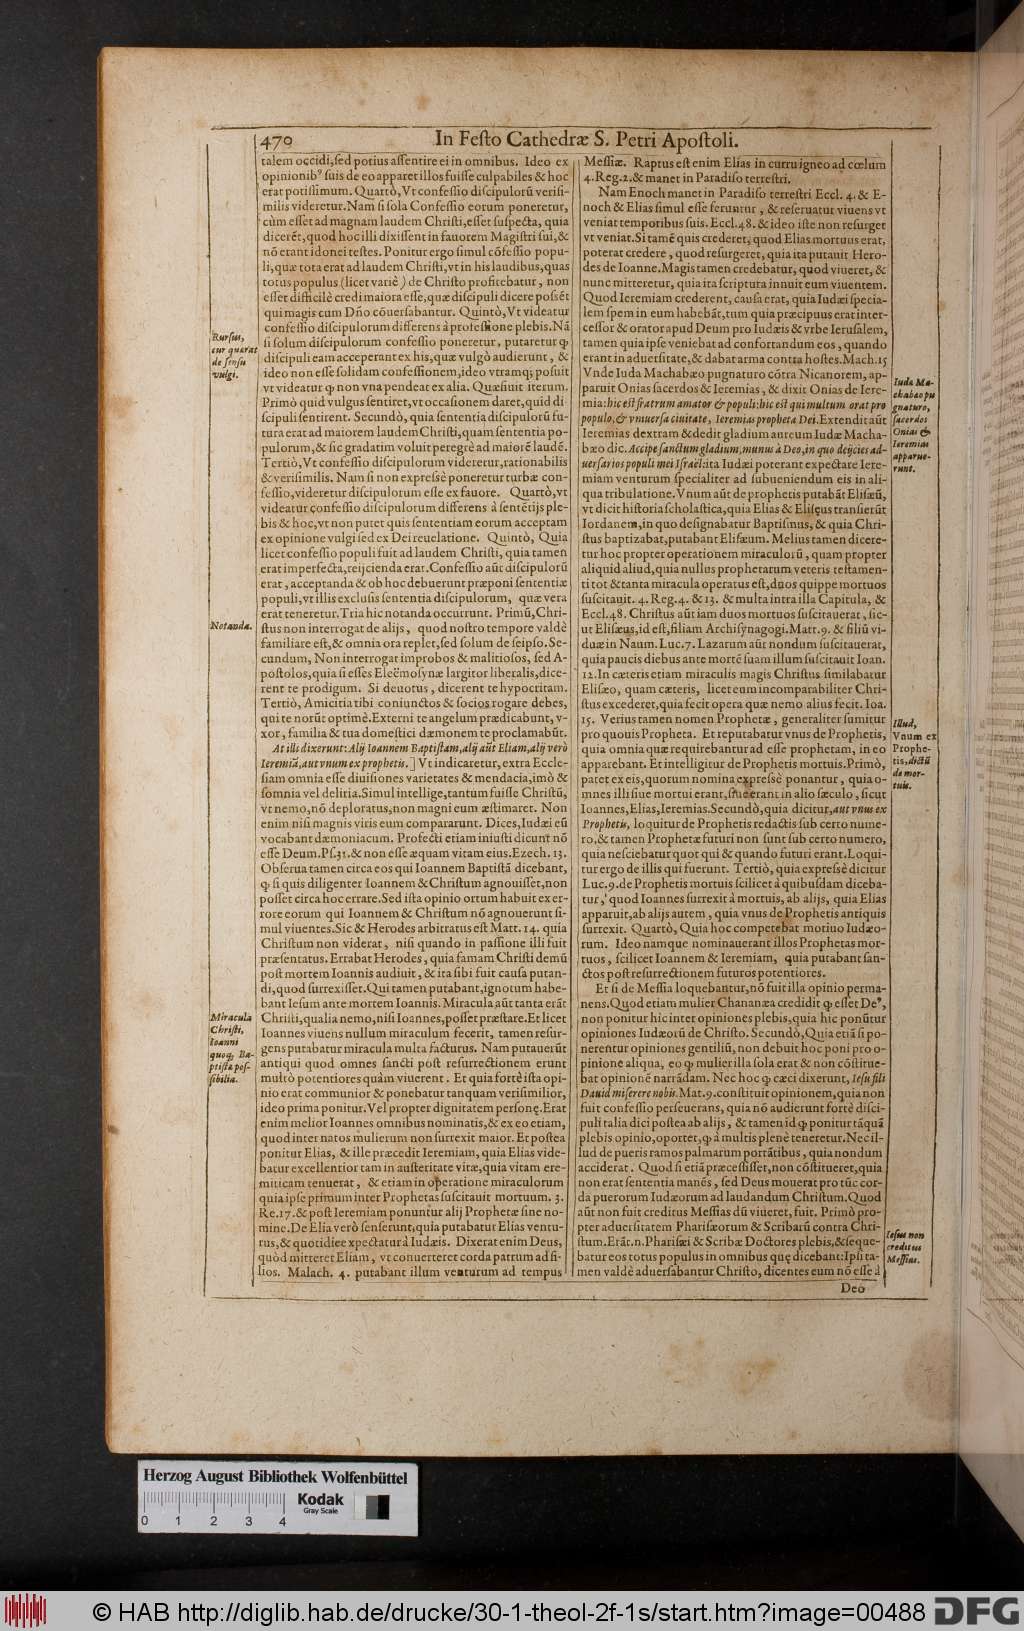 470 In Festo Cathedræ S. Petri Apostoli.
talem occidi, sed potius assentire ei in omnibus. Ideo ex
opinionib⁹ suis de eo apparet illos fuisse culpabiles & hoc
erat potissimum. Quartò, Vt confessio discipulorũ verisi-
milis videretur. Nam si sola Confessio eorum poneretur,
cùm esset ad magnam laudem Christi, esset suspecta, quia
dicerẽt, quod hoc illi dixissent in fauorem Magistri sui, &
nõ erant idonei testes. Ponitur ergo simul cõfessio popu-
li, quæ tota erat ad laudem Christi, vt in his laudibus, quas
totus populus (licet variè) de Christo profitebatur, non
esset difficilè credi maiora esse, quæ discipuli dicere possẽt
qui magis cum Dño cõuersabantur. Quintò, Vt videatur
confessio discipulorum differens à professione plebis. Nã
si solum discipulorum confessio poneretur, putaretur ꝙ
discipuli eam acceperant ex his, quæ vulgò audierunt, &
ideo non esse solidam confessionem, ideo vtramq; posuit
vt videatur ꝙ non vna pendeat ex alia. Quæsiuit iterum.
Primò quid vulgus sentiret, vt occasionem daret, quid di-
scipuli sentirent. Secundò, quia sententia discipulorũ fu-
tura erat ad maiorem laudem Christi, quam sententia po-
pulorum, & sic gradatim voluit peregrè ad maiorẽ laudẽ.
Tertiò, Vt confessio discipulorum videretur, rationabilis
& verisimilis. Nam si non expressè poneretur turbæ con-
fessio, videretur discipulorum esse ex fauore. Quartò, vt
videatur confessio discipulorum differens à sentẽtijs ple-
bis & hoc, vt non putet quis sententiam eorum acceptam
ex opinione vulgi sed ex Dei reuelatione. Quintò, Quia
licet confessio populi fuit ad laudem Christi, quia tamen
erat imperfecta, reijcienda erat. Confessio aũt discipulorũ
erat, acceptanda & ob hoc debuerunt præponi sententiæ
populi, vt illis exclusis sententia discipulorum, quæ vera
erat teneretur. Tria hic notanda occurrunt. Primũ, Chri-
stus non interrogat de alijs, quod nostro tempore valdè
familiare est, & omnia ora replet, sed solum de seipso. Se-
cundum, Non interrogat improbos & malitiosos, sed A-
postolos, quia si esses Eleëmosynæ largitor liberalis, dice-
rent te prodigum. Si deuotus, dicerent te hypocritam.
Tertiò, Amicitia tibi coniunctos & socios rogare debes,
qui te norũt optimè. Externi te angelum prædicabunt, v-
xor, familia & tua domestici dæmonem te proclamabũt.
At illi dixerunt: Alij Ioannem Baptistam, alij aũt Eliam, alij verò
Ieremiã, aut vnum ex prophetis.] Vt indicaretur, extra Eccle-
siam omnia esse diuisiones varietates & mendacia, imò &
somnia vel deliria. Simul intellige, tantum fuisse Christũ,
vt nemo, nõ deploratus, non magni eum æstimaret. Non
enim nisi magnis viris eum compararunt. Dices, Iudæi eũ
vocabant dæmoniacum. Profectò etiam iniusti dicunt nõ
esse Deum. Ps. 31. & non esse æquam vitam eius. Ezech. 13.
Obserua tamen circa eos qui Ioannem Baptistã dicebant,
ꝙ si quis diligenter Ioannem & Christum agnouisset, non
posset circa hoc errare. Sed ista opinio ortum habuit ex er-
rore eorum qui Ioannem & Christum nõ agnouerunt si-
mul viuentes. Sic & Herodes arbitratus est Matt. 14. quia
Christum non viderat, nisi quando in passione illi fuit
præsentatus. Errabat Herodes, quia famam Christi demũ
post mortem Ioannis audiuit, & ita sibi fuit causa putan-
di, quod surrexisset. Qui tamen putabant, ignotum habe-
bant Iesum ante mortem Ioannis. Miracula aũt tanta erãt
Christi, qualia nemo, nisi Ioannes, posset præstare. Et licet
Ioannes viuens nullum miraculum fecerit, tamen resur-
gens putabatur miracula multa facturus. Nam putauerũt
antiqui quod omnes sancti post resurrectionem erunt
multò potentiores quàm viuerent. Et quia fortè ista opi-
nio erat communior & ponebatur tanquam verisimilior,
ideo prima ponitur. Vel propter dignitatem personę. Erat
enim melior Ioannes omnibus nominatis, & ex eo etiam,
quod inter natos mulierum non surrexit maior. Et postea
ponitur Elias, & ille præcedit Ieremiam, quia Elias vide-
batur excellentior tam in austeritate vitæ, quia vitam ere-
miticam tenuerat, & etiam in operatione miraculorum
quia ipse primum inter Prophetas suscitauit mortuum. 3.
Re. 17. & post Ieremiam ponuntur alij Prophetæ sine no-
mine. De Elia verò senserunt, quia putabatur Elias ventu-
rus, & quotidie expectatur à Iudæis. Dixerat enim Deus,
quòd mitteret Eliam, vt conuerteret corda patrum ad fi-
lios. Malach. 4. putabant illum venturum ad tempus
Rursus,
cur quærat
de sensu
vulgi.
Notanda.
Miracula
Christi,
Ioanni
quoq, Ba-
ptistæ pos-
sibilia.
Messiæ. Raptus est enim Elias in curru igneo ad cœlum
4. Reg. 2. & manet in Paradiso terrestri.
Nam Enoch manet in Paradiso terrestri Eccl. 4. & E-
noch & Elias simul esse feruntur, & reseruatur viuens vt
veniat temporibus suis. Eccl. 48. & ideo iste non resurget
vt veniat. Si tamẽ quis crederet, quod Elias mortuus erat,
poterat credere, quod resurgeret, quia ita putauit Hero-
des de Ioanne. Magis tamen credebatur, quod viueret, &
nunc mitteretur, quia ita scriptura innuit eum viuentem.
Quod Ieremiam crederent, causa erat, quia Iudæi specia-
lem spem in eum habebãt, tum quia præcipuus erat inter-
cessor & orator apud Deum pro Iudæis & vrbe Ierusalem,
tamen quia ipse veniebat ad confortandum eos, quando
erant in aduersitate, & dabat arma contra hostes. Mach. 15
Vnde Iuda Machabæo pugnaturo cõtra Nicanorem, ap-
paruit Onias sacerdos & Ieremias, & dixit Onias de Iere-
mia: hic est fratrum amator & populi: hic est qui multum orat pro
populo, & vniuersa ciuitate, Ieremias propheta Dei. Extendit aũt
Ieremias dextram & dedit gladium aureum Iudæ Macha-
bæo dic. Accipe sanctum gladium, munus à Deo, in quo deijcies ad-
uersarios populi mei Israël: ita Iudæi poterant expectare Iere-
miam venturum specialiter ad subueniendum eis in ali-
qua tribulatione. Vnum aũt de prophetis putabãt Elisæũ,
vt dicit historia scholastica, quia Elias & Eliseus transierũt
Iordanem, in quo designabatur Baptismus, & quia Chri-
stus baptizabat, putabant Elisæum. Melius tamen dicere-
tur hoc propter operationem miraculorũ, quam propter
aliquid aliud, quia nullus prophetarum veteris testamen-
ti tot & tanta miracula operatus est, duos quippe mortuos
suscitauit. 4. Reg. 4. & 13. & multa intra illa Capitula, &
Eccl. 48. Christus aũt iam duos mortuos suscitauerat, sic-
ut Elisæus, id est, filiam Archisynagogi. Matt. 9. & filiũ vi-
duæ in Naum. Luc. 7. Lazarum aũt nondum suscitauerat,
quia paucis diebus ante mortẽ suam illum suscitauit Ioan.
12. In cæteris etiam miraculis magis Christus similabatur
Elisæo, quam cæteris, licet eum incomparabiliter Chri-
stus excederet, quia fecit opera quæ nemo alius fecit. Ioa.
15. Verius tamen nomen Prophetæ, generaliter sumitur
pro quouis Propheta. Et reputabatur vnus de Prophetis,
quia omnia quæ requirebantur ad esse prophetam, in eo
apparebant. Et intelligitur de Prophetis mortuis. Primò,
patet ex eis, quorum nomina expressè ponantur, quia o-
mnes illi siue mortui erant, siue erant in alio sæculo, sicut
Ioannes, Elias, Ieremias. Secundò, quia dicitur, aut vnus ex
Prophetis, loquitur de Prophetis redactis sub certo nume-
ro, & tamen Prophetæ futuri non sunt sub certo numero,
quia nesciebatur quot qui & quando futuri erant. Loqui-
tur ergo de illis qui fuerunt. Tertiò, quia expressè dicitur
Luc. 9. de Prophetis mortuis scilicet à quibusdam diceba-
tur, quod Ioannes surrexit à mortuis, ab alijs, quia Elias
apparuit, ab alijs autem, quia vnus de Prophetis antiquis
surrexit. Quartò, Quia hoc competebat motiuo Iudæo-
rum. Ideo namque nominauerant illos Prophetas mor-
tuos, scilicet Ioannem & Ieremiam, quia putabant san-
ctos post resurrectionem futuros potentiores.
Et si de Messia loquebantur, nõ fuit illa opinio perma-
nens. Quod etiam mulier Chananæa credidit ꝙ esset De⁹,
non ponitur hic inter opiniones plebis, quia hic ponũtur
opiniones Iudæorũ de Christo. Secundò, Quia etiã si po-
nerentur opiniones gentiliũ, non debuit hoc poni pro o-
pinione aliqua, eo ꝙ mulier illa sola erat & non cõstitue-
bat opinionẽ narrãdam. Nec hoc ꝙ cæci dixerunt, Iesu fili
Dauid miserere nobis. Mat. 9. constituit opinionem, quia non
fuit confessio perseuerans, quia nõ audierunt fortè disci-
puli talia dici postea ab alijs, & tamen id ꝙ ponitur tãquã
plebis opinio, oportet, ꝙ à multis plenè teneretur. Nec il-
lud de pueris ramos palmarum portãtibus, quia nondum
acciderat. Quod si etiã præcessisset, non cõstitueret, quia
non erat sententia manẽs, sed Deus mouerat pro tũc cor-
da puerorum Iudæorum ad laudandum Christum. Quod
aũt non fuit creditus Messias dũ viueret, fuit. Primò pro-
pter aduersitatem Pharisæorum & Scribarũ contra Chri-
stum. Erãt. n. Pharisæi & Scribæ Doctores plebis, & seque-
batur eos totus populus in omnibus quę dicebant: Ipsi ta-
men valdè aduersabantur Christo, dicentes eum nõ esse à
Deo
Iuda Ma-
chabæo pu
gnaturo,
sacerdos
Onias &
Ieremias
apparue-
runt.
Illud,
Vnum ex
Prophe-
tis, dictũ
de mor-
tuis.
Iesus non
creditus
Messias.
Herzog August Bibliothek Wolfenbüttel
Kodak
Gray Scale
0 1 2 3 4
© HAB http://diglib.hab.de/drucke/30-1-theol-2f-1s/start.htm?image=00488
DFG